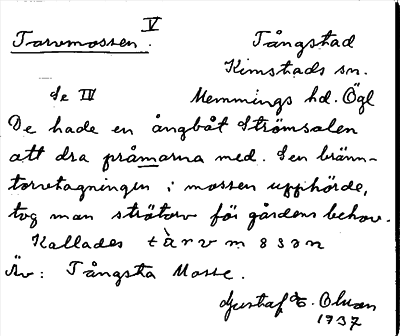 V
Torvmossen.
Tångstad
Kimstads sn.
Se IV
Memmings hd. Ögl
De hade en ångbåt Strömsalen
att dra pråmarna med. Sen bränn-
torvtagningen i mossen upphörde,
tog man strötorv för gårdens behov.
Kallades tàrvmssən
Äv: Tångsta Mosse.
Gustaf E. Olsson
1937